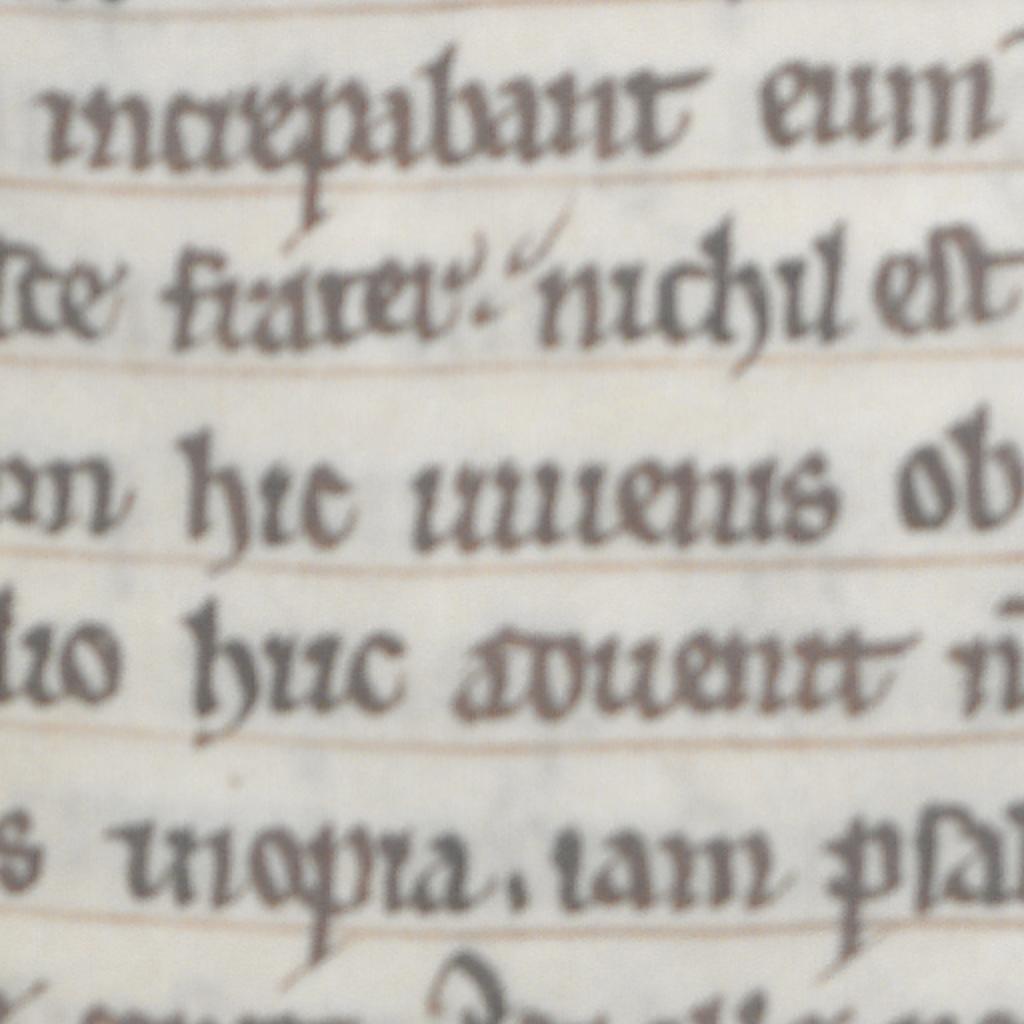 increpabant eum
frater nichil est
hic iuuenis ob
huc aduenit
inopia. iam psal